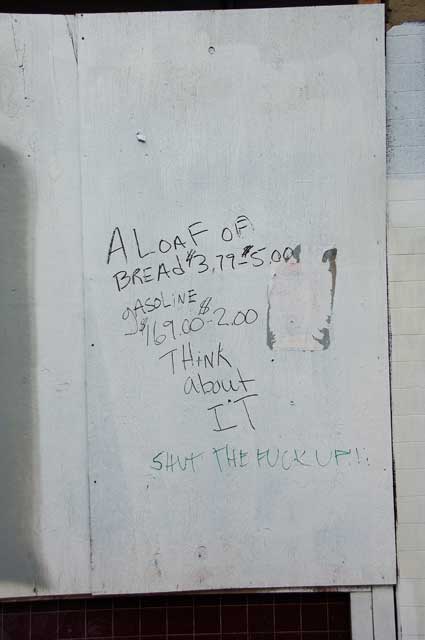 A LOAF OF
BREAd $3.79-$5.00
gASOLINE
$169.00-$2.00
THiNK
about
IT
SHUT THE FUCK UP!!!